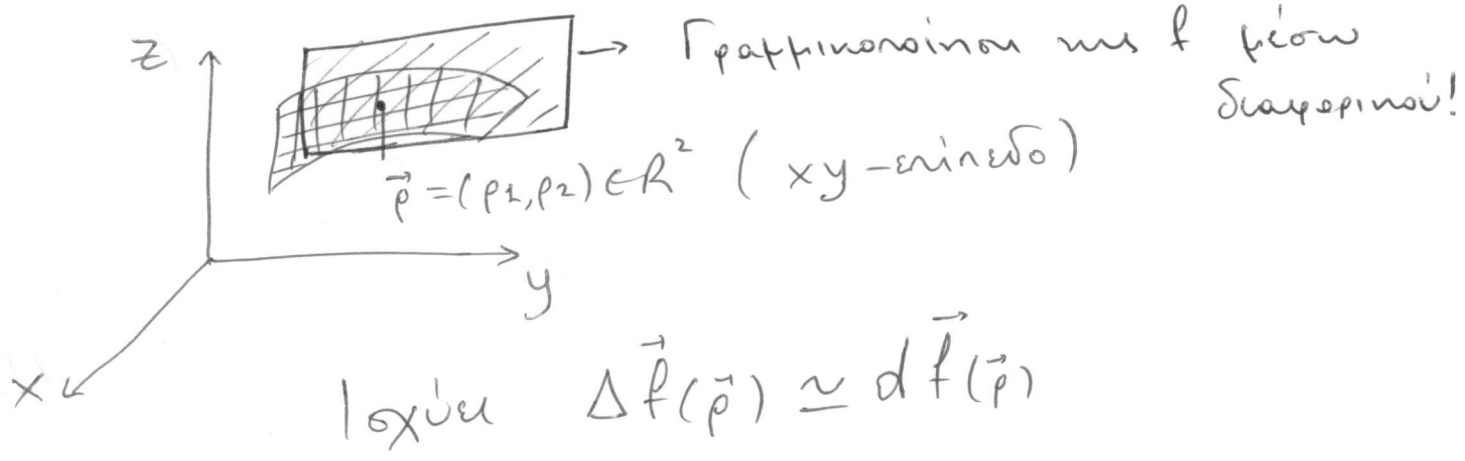 z
Γραμμικοποίηση της f μέσω
διαφορικού!
\vec{ρ} = (ρ1, ρ2) ∈ R² (xy-επίπεδο)
y
x
Ισχύει Δ\vec{f}(\vec{ρ}) ≃ d\vec{f}(\vec{ρ})